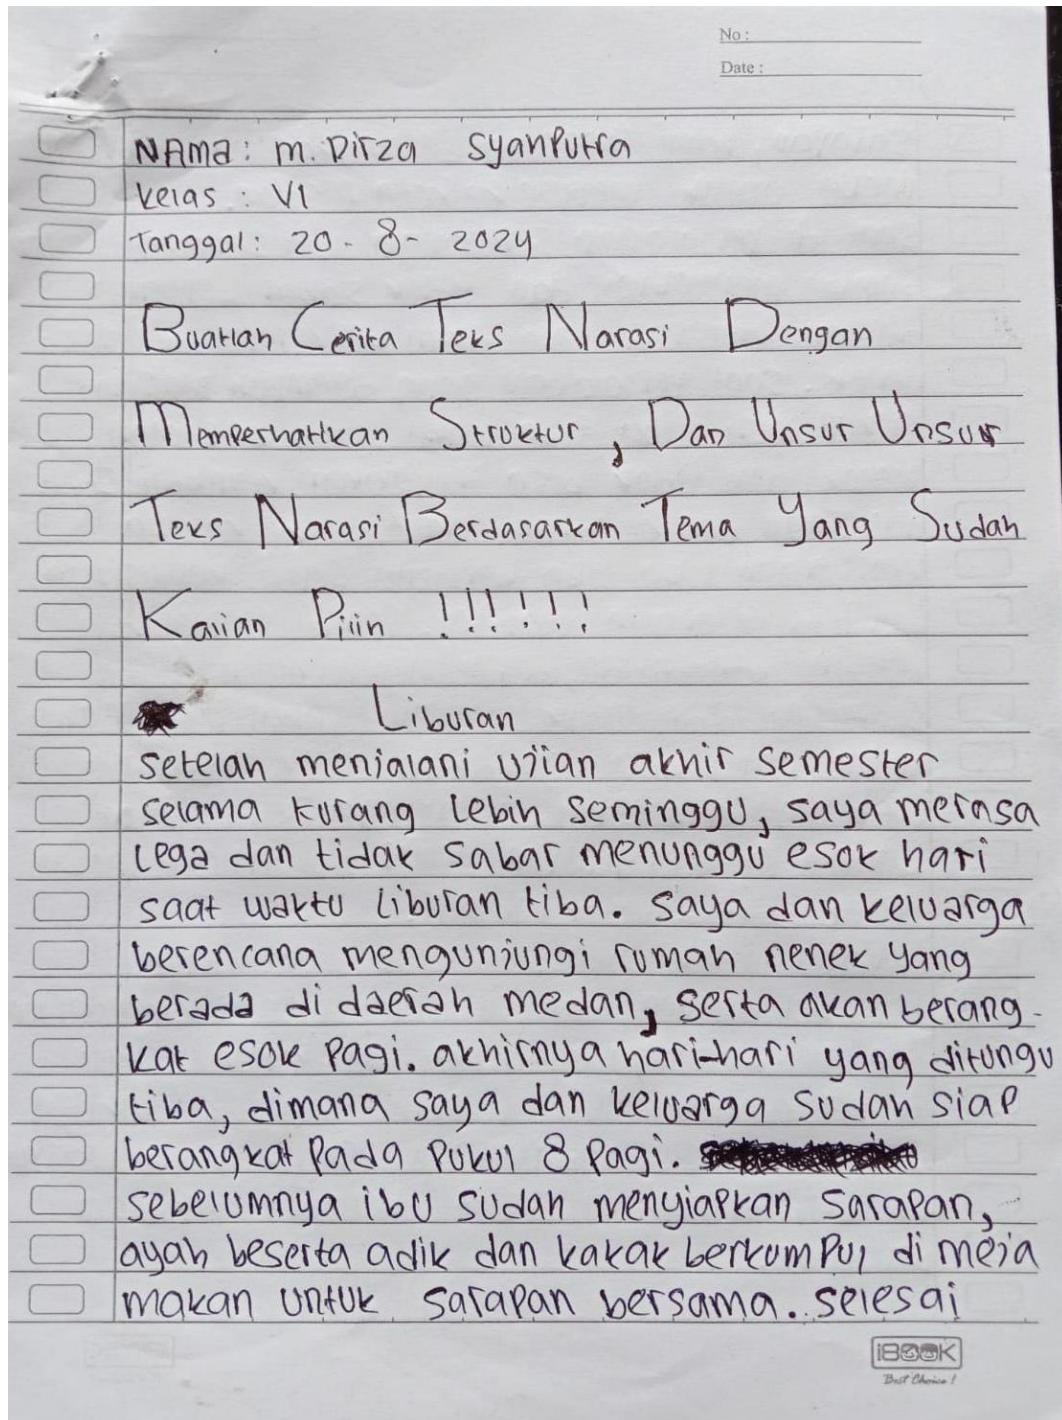 No :
Date :
NAMA : M. Dirza Syanputra
Kelas : VI
Tanggal : 20 - 8 - 2024
Buatlah Cerita Teks Narasi Dengan
Memperhatikan Struktur , Dan Unsur Unsur
Teks Narasi Berdasarkan Tema Yang Sudah
Kalian Pilih !!!!!!
Liburan
setelah menjalani ujian akhir semester
selama kurang lebih seminggu, saya merasa
lega dan tidak sabar menunggu esok hari
saat waktu liburan tiba. saya dan keluarga
berencana mengunjungi rumah nenek yang
berada di daerah medan, serta akan berang-
kat esok pagi. akhirnya hari-hari yang ditungu
tiba, dimana saya dan keluarga sudah siap
berangkat pada pukul 8 pagi.
sebelumnya ibu sudah menyiapkan sarapan,
ayah beserta adik dan kakak berkumpul di meja
makan untuk sarapan bersama. selesai
iBOOK
Best Choice !